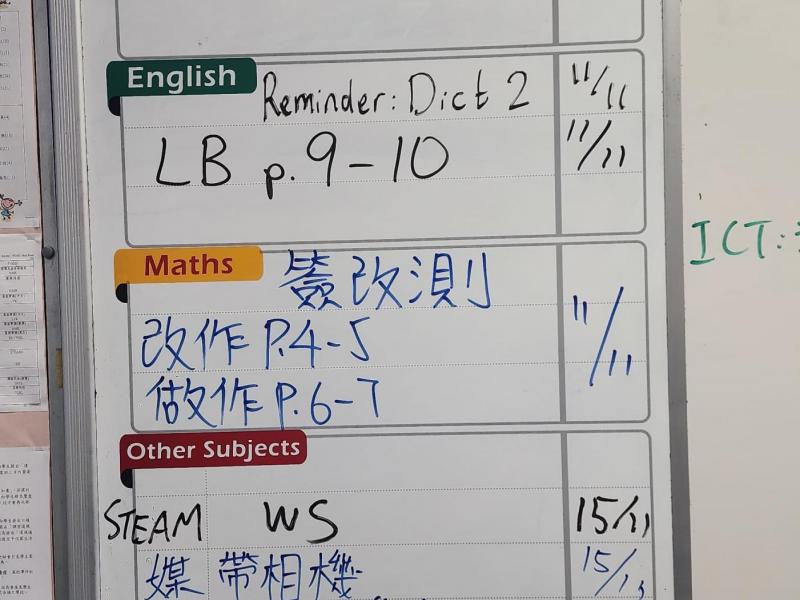 English
Reminder: Dict 2 11/11
LB p.9-10 11/11
Maths
簽改測
改作 P.4-5 11/11
做作 P.6-7
Other Subjects
STEAM WS 15/11
媒 帶相機 15/11
ICT: